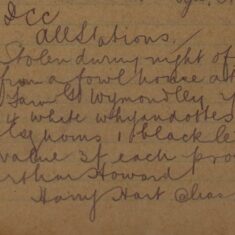 DCC
All Stations.
Stolen during night of
from a fowl house at
Farm Gt Wymondley
4 white whyandottes
horns 1 black le
value 3/ each pro
Arthur Howard
Harry Hart Chas